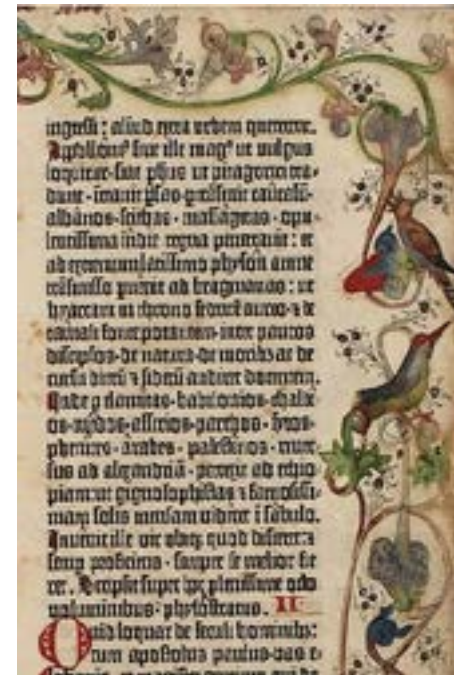 ingressi: aliud extra urbem quererent.
Apolloniꝰ sive ille magꝰ ut vulgus
loquitur · sive phūs · ut pitagorici tra-
dunt · intravit psas · ptransivit caucasū ·
albanos · scithas · massagetas · opu-
lentissima indie regna penetravit : et
ad extremum latissimo physon amne
trāsmisso puenit ad bragmanas : ut
hyarcam in throno sedentē aureo · ⁊ de
tantali fonte potantem · inter paucos
discipulos · de natura · de moribꝫ ac de
cursu dierū ⁊ siderū audiret docentem.
Inde p elamitas · babilonios · chalde
os · medos · assirios · parthos · siros ·
phenices · arabes · palestinos · rever-
sus ad alexandriā · perrexit ad ethio
piam : ut gignosophistas ⁊ famosissi-
mam solis mensam videret ī sabulo.
Invenit ille vir ubiqꝫ quod disceret : ⁊
semp proficiens · semper se melior fie
ret. Scripsit super hoc plenissime octo
voluminibus : phylostratus. II
Quid loquar de seculi hominibꝫ :
cum apostolus paulus · vas e-